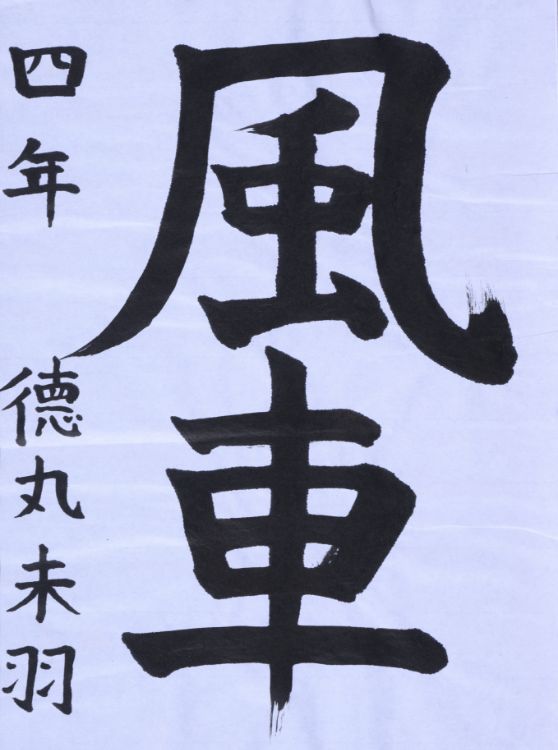 風車
四年 徳丸未羽